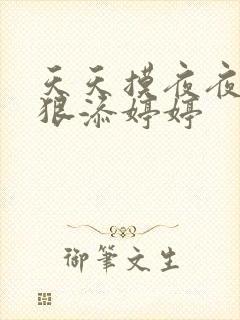 天天摸夜夜
狠添婷婷
御筆文生